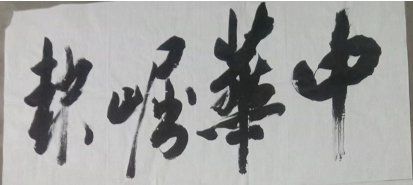 中華崛起